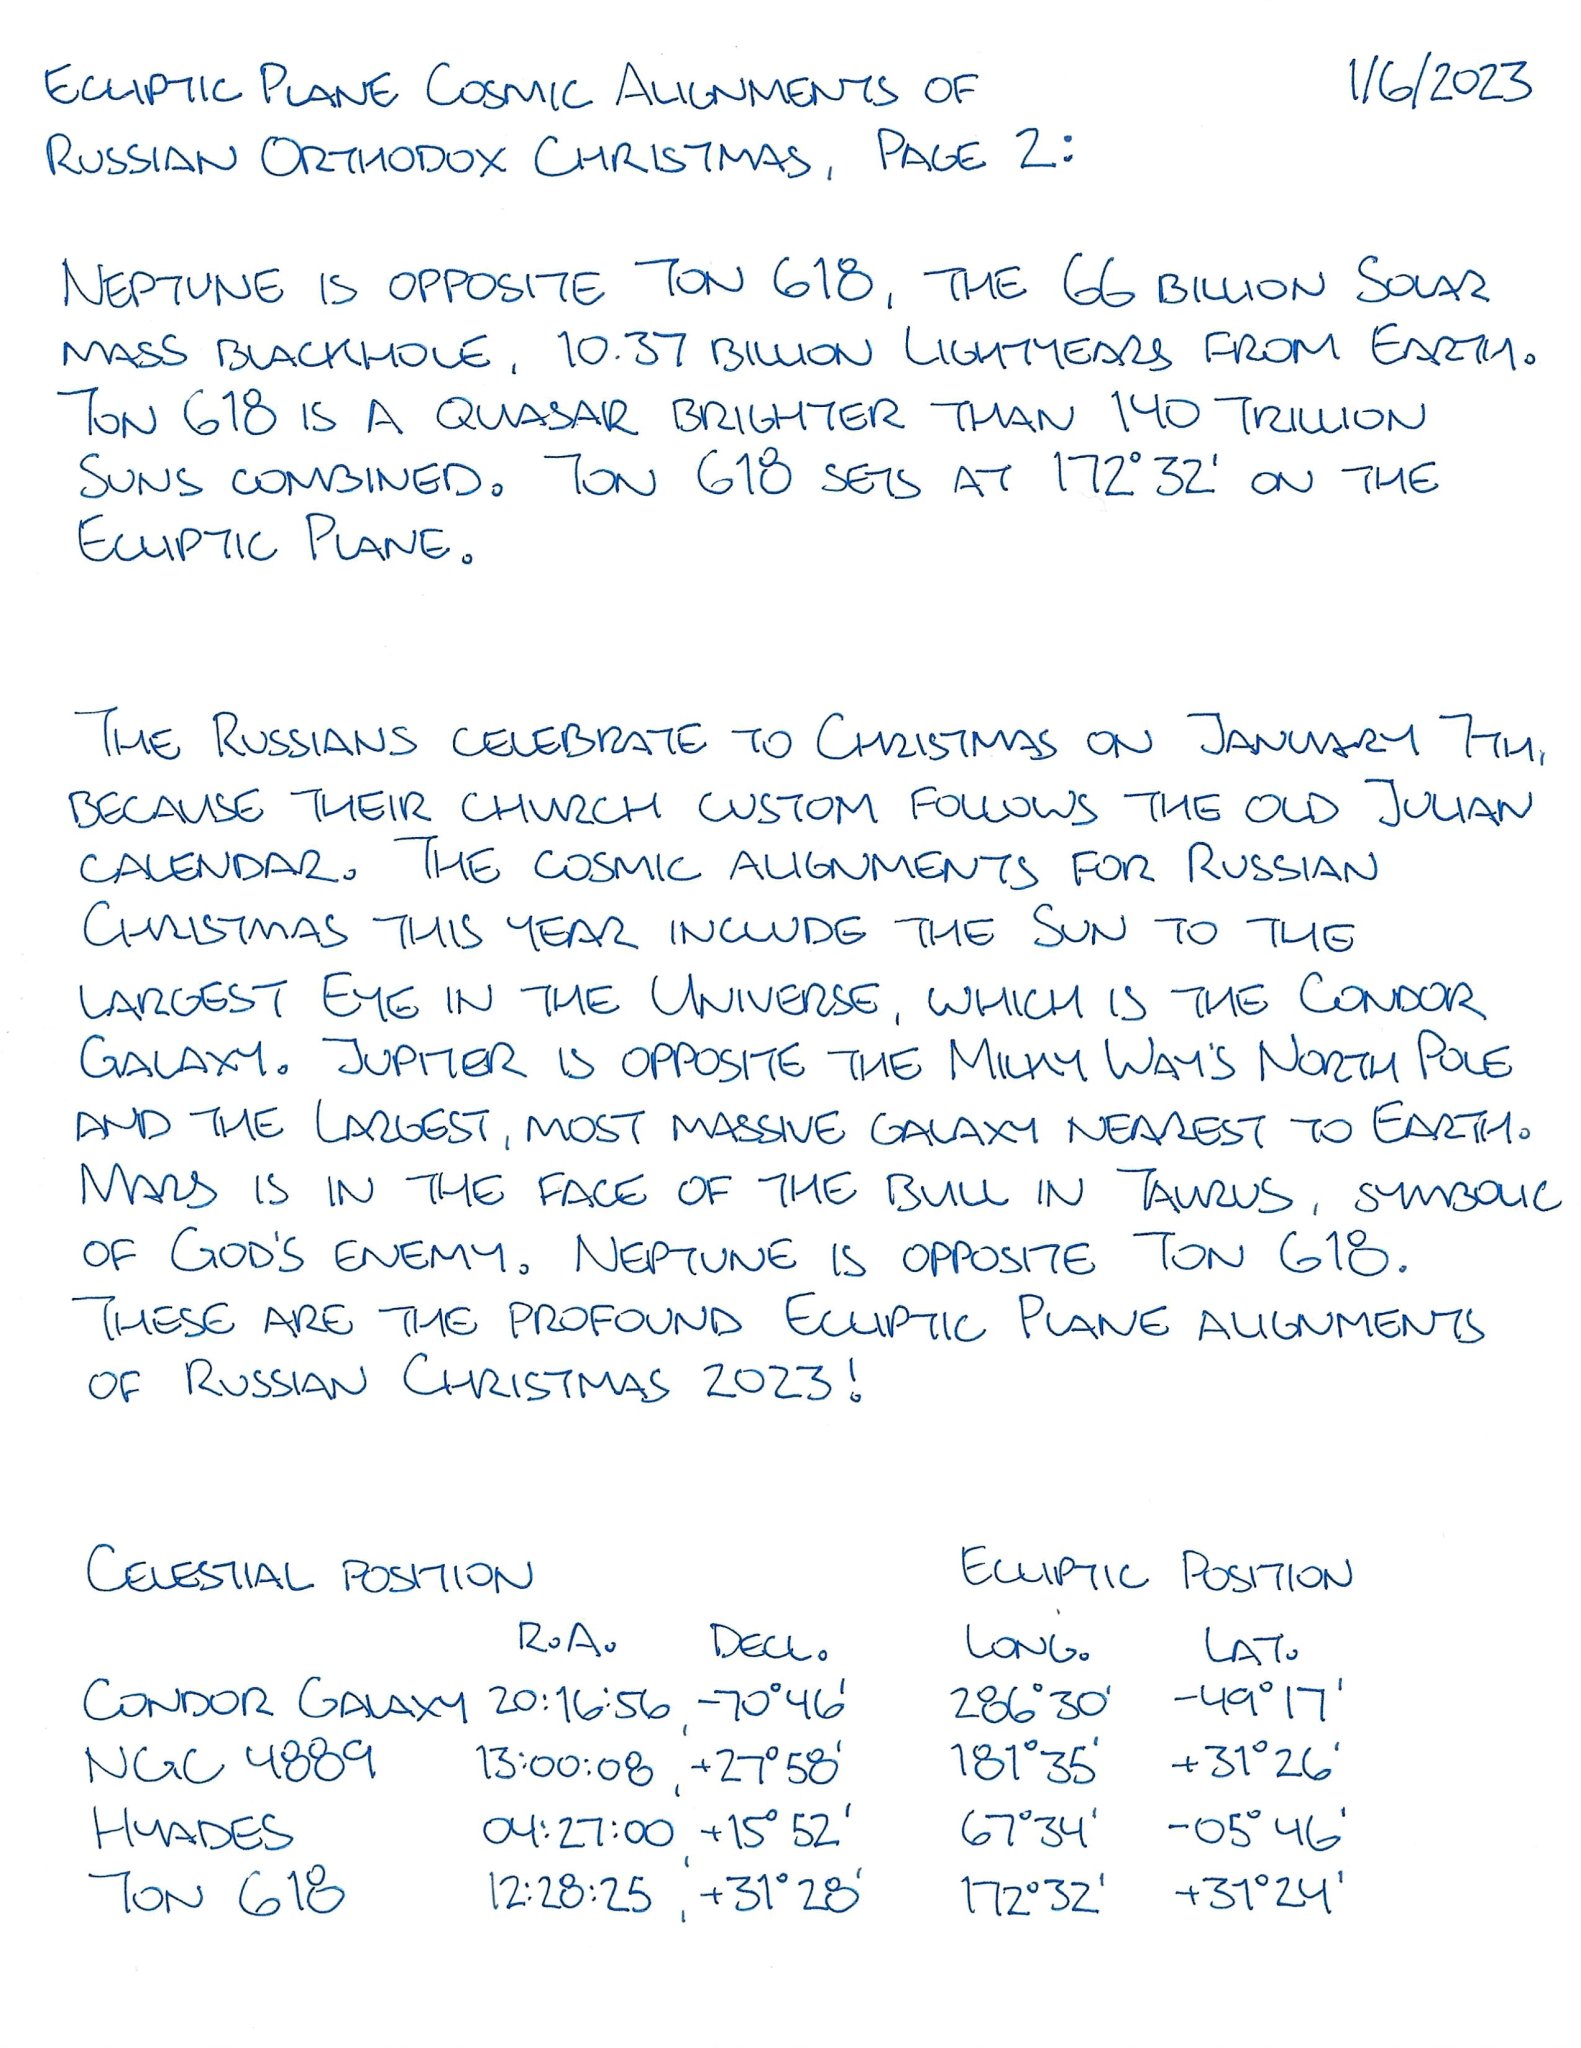 Ecliptic Plane Cosmic Alignments of 1/6/2023
Russian Orthodox Christmas, Page 2:
Neptune is opposite Ton 618, the 66 billion Solar
mass blackhole, 10.37 billion Lightyears from Earth.
Ton 618 is a quasar brighter than 140 Trillion
Suns combined. Ton 618 sets at 172°32' on the
Ecliptic Plane.
The Russians celebrate to Christmas on January 7th,
because their church custom follows the old Julian
calendar. The cosmic alignments for Russian
Christmas this year include the Sun to the
largest Eye in the Universe, which is the Condor
Galaxy. Jupiter is opposite the Milky Way's North Pole
and the Largest, most massive galaxy nearest to Earth.
Mars is in the face of the Bull in Taurus, symbolic
of God's enemy. Neptune is opposite Ton 618.
These are the profound Ecliptic Plane alignments
of Russian Christmas 2023!
Celestial position Ecliptic Position
R.A. Decl. Long. Lat.
Condor Galaxy 20:16:56, -70°46' 286°30' -49°17'
NGC 4889 13:00:08, +27°58' 181°35' +31°26'
Hyades 04:27:00, +15°52' 67°34' -05°46'
Ton 618 12:28:25, +31°28' 172°32' +31°24'